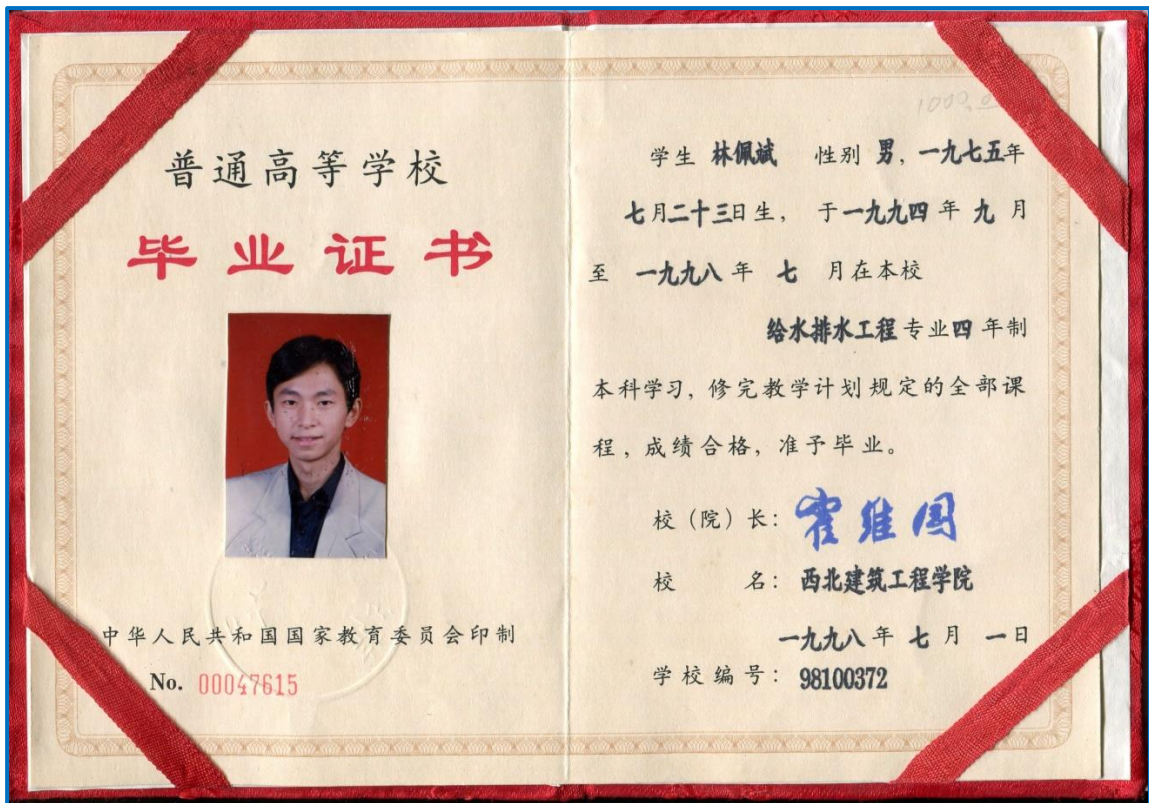 普通高等学校
毕业证书
中华人民共和国国家教育委员会印制
No. 00047615
学生 林佩斌 性别 男，一九七五年
七月二十三日生， 于一九九四年九月
至 一九九八年 七 月在本校
给水排水工程专业四年制
本科学习，修完教学计划规定的全部课
程，成绩合格，准予毕业。
校（院）长：霍维国
校 名：西北建筑工程学院
一九九八年七月一日
学校编号：98100372